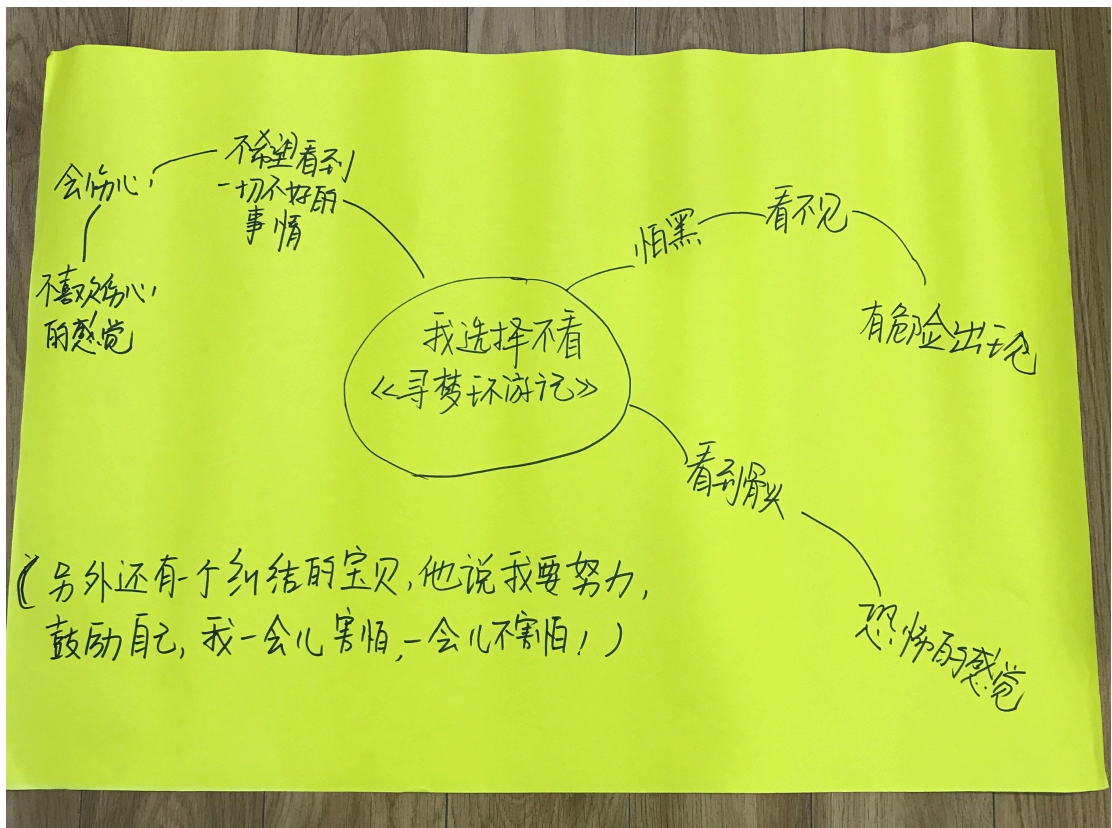 我选择不看
《寻梦环游记》
不希望看到
一切不好的
事情
会伤心
不喜欢伤心
的感觉
怕黑
看不见
有危险出现
看到骨头
恐怖的感觉
(另外还有一个纠结的宝贝,他说我要努力,
鼓励自己,我一会儿害怕,一会儿不害怕!)